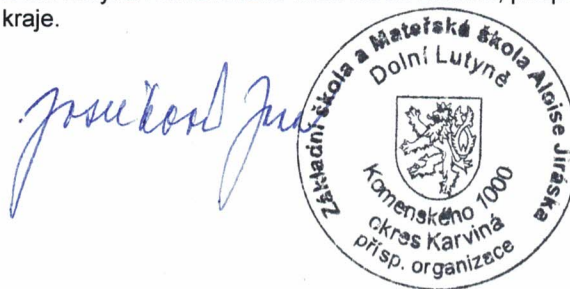 kraje.
Základní škola a Mateřská škola Aloise Jiráska
Dolní Lutyně
Komenského 1000
okres Karviná
přísp. organizace